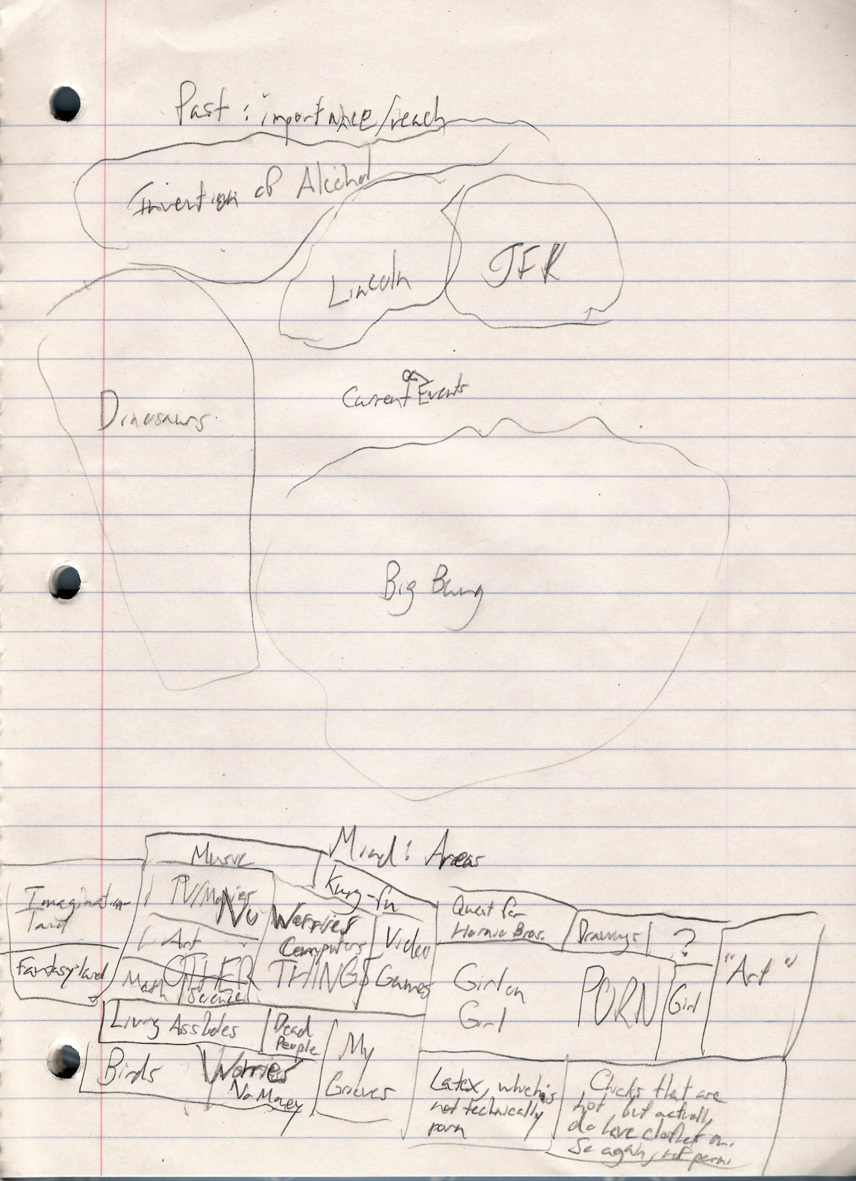 Past: importance/reach
Invention of Alcohol
Lincoln
JFK
Current Events
Dinosaurs
Big Bang
Mind: Areas
Music
Kung-fu
Imagination
land
TV/Movies
No Worries
Quest for
Hornie Bros.
Drawings
?
"Art"
Art
Computers
Video
Games
Fantasy land
Math
Science
OTHER THINGS
Girl on
Girl
PORN
Girl
Living Assholes
Dead
People
My
Grieves
Birds
Worries
No Money
Latex, which is
not technically
porn
Chicks that are
hot, but actually
do have clothes on.
So again, not porn.